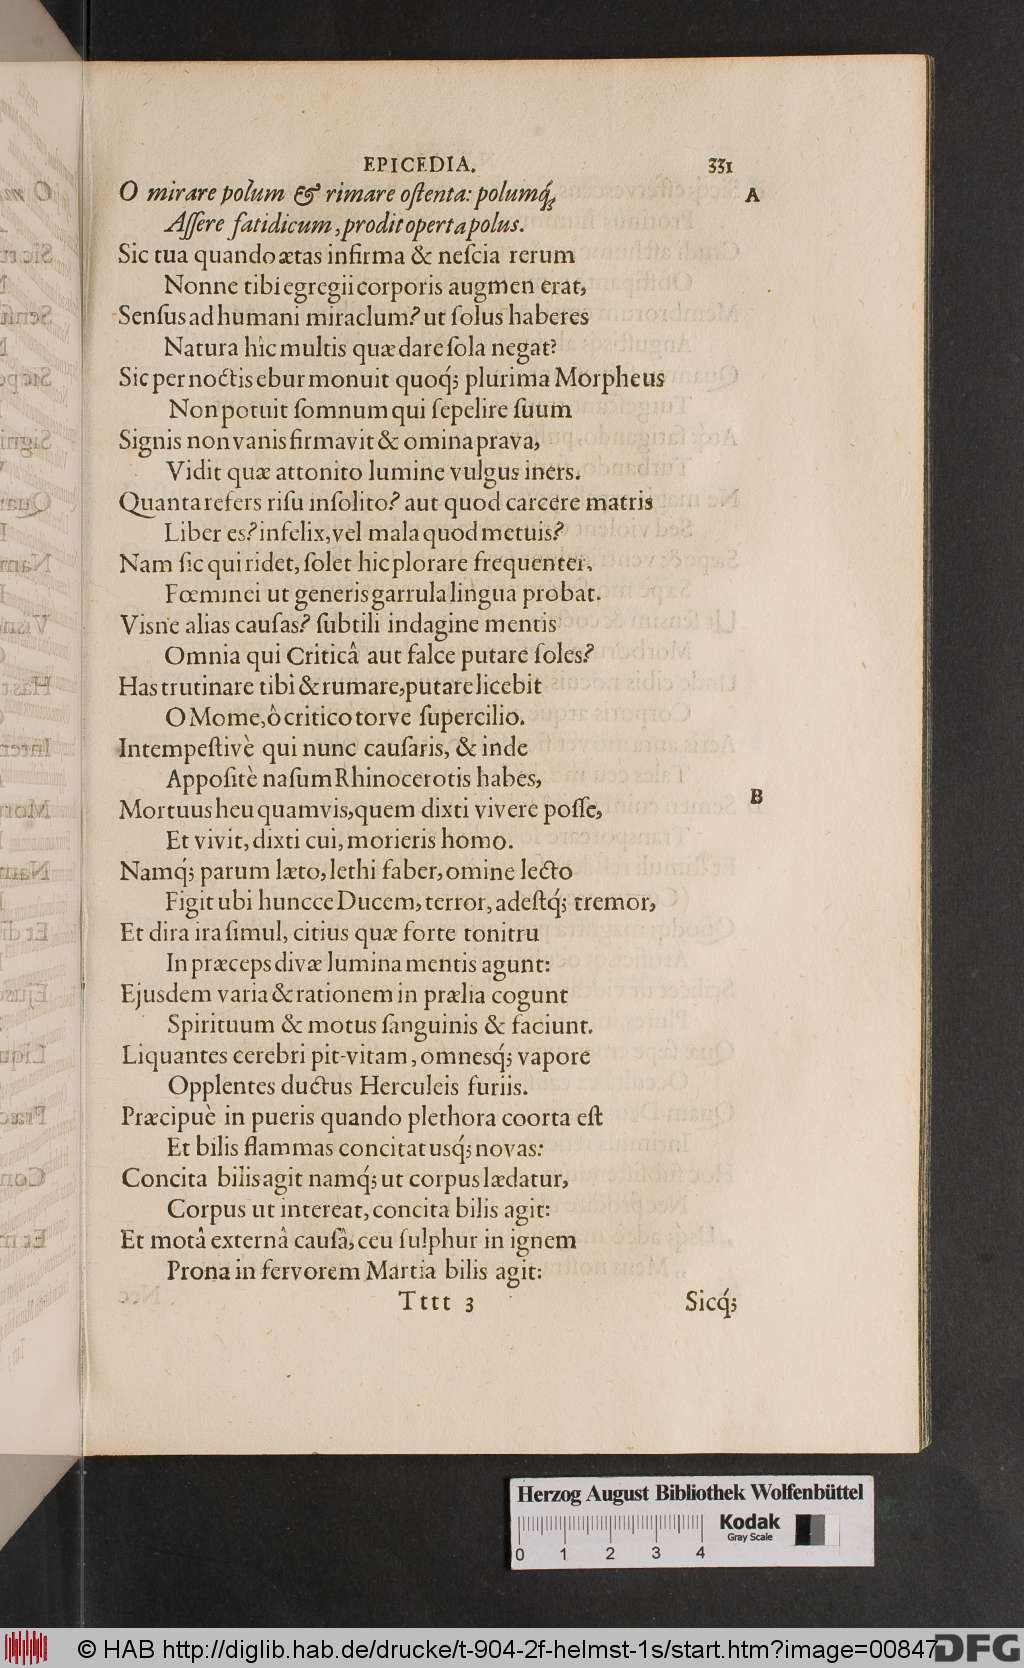 EPICEDIA. 331
O mirare polum & rimare oſtenta: polumq́;
A
Aſſere fatidicum, prodit operta polus.
Sic tua quando ætas infirma & neſcia rerum
Nonne tibi egregii corporis augmen erat,
Senſus ad humani miraclum? ut ſolus haberes
Natura hîc multis quæ dare ſola negat?
Sic per noctis ebur monuit quoq́; plurima Morpheus
Non potuit ſomnum qui ſepelire ſuum
Signis non vanis firmavit & omina prava,
Vidit quæ attonito lumine vulgus iners.
Quanta refers riſu inſolito? aut quod carcere matris
Liber es? infelix, vel mala quod metuis?
Nam ſic qui ridet, ſolet hic plorare frequenter,
Fœminei ut generis garrula lingua probat.
Visne alias cauſas? ſubtili indagine mentis
Omnia qui Criticâ aut falce putare ſoles?
Has trutinare tibi & rumare, putare licebit
O Mome, ô critico torve ſupercilio.
Intempeſtivè qui nunc cauſaris, & inde
Appoſitè naſum Rhinocerotis habes,
Mortuus heu quamvis, quem dixti vivere poſſe,
B
Et vivit, dixti cui, morieris homo.
Namq́; parum læto, lethi faber, omine lecto
Figit ubi huncce Ducem, terror, adeſtq́; tremor,
Et dira ira ſimul, citius quæ forte tonitru
In præceps divæ lumina mentis agunt:
Ejusdem varia & rationem in prælia cogunt
Spirituum & motus ſanguinis & faciunt.
Liquantes cerebri pit-vitam, omnesq́; vapore
Opplentes ductus Herculeis furiis.
Præcipuè in pueris quando plethora coorta eſt
Et bilis flammas concitat usq́; novas:
Concita bilis agit namq́; ut corpus lædatur,
Corpus ut intereat, concita bilis agit:
Et motâ externâ cauſâ, ceu ſulphur in ignem
Prona in fervorem Martia bilis agit:
Tttt 3 Sicq́;
Herzog August Bibliothek Wolfenbüttel
Kodak
Gray Scale
0 1 2 3 4
© HAB http://diglib.hab.de/drucke/t-904-2f-helmst-1s/start.htm?image=00847
DFG